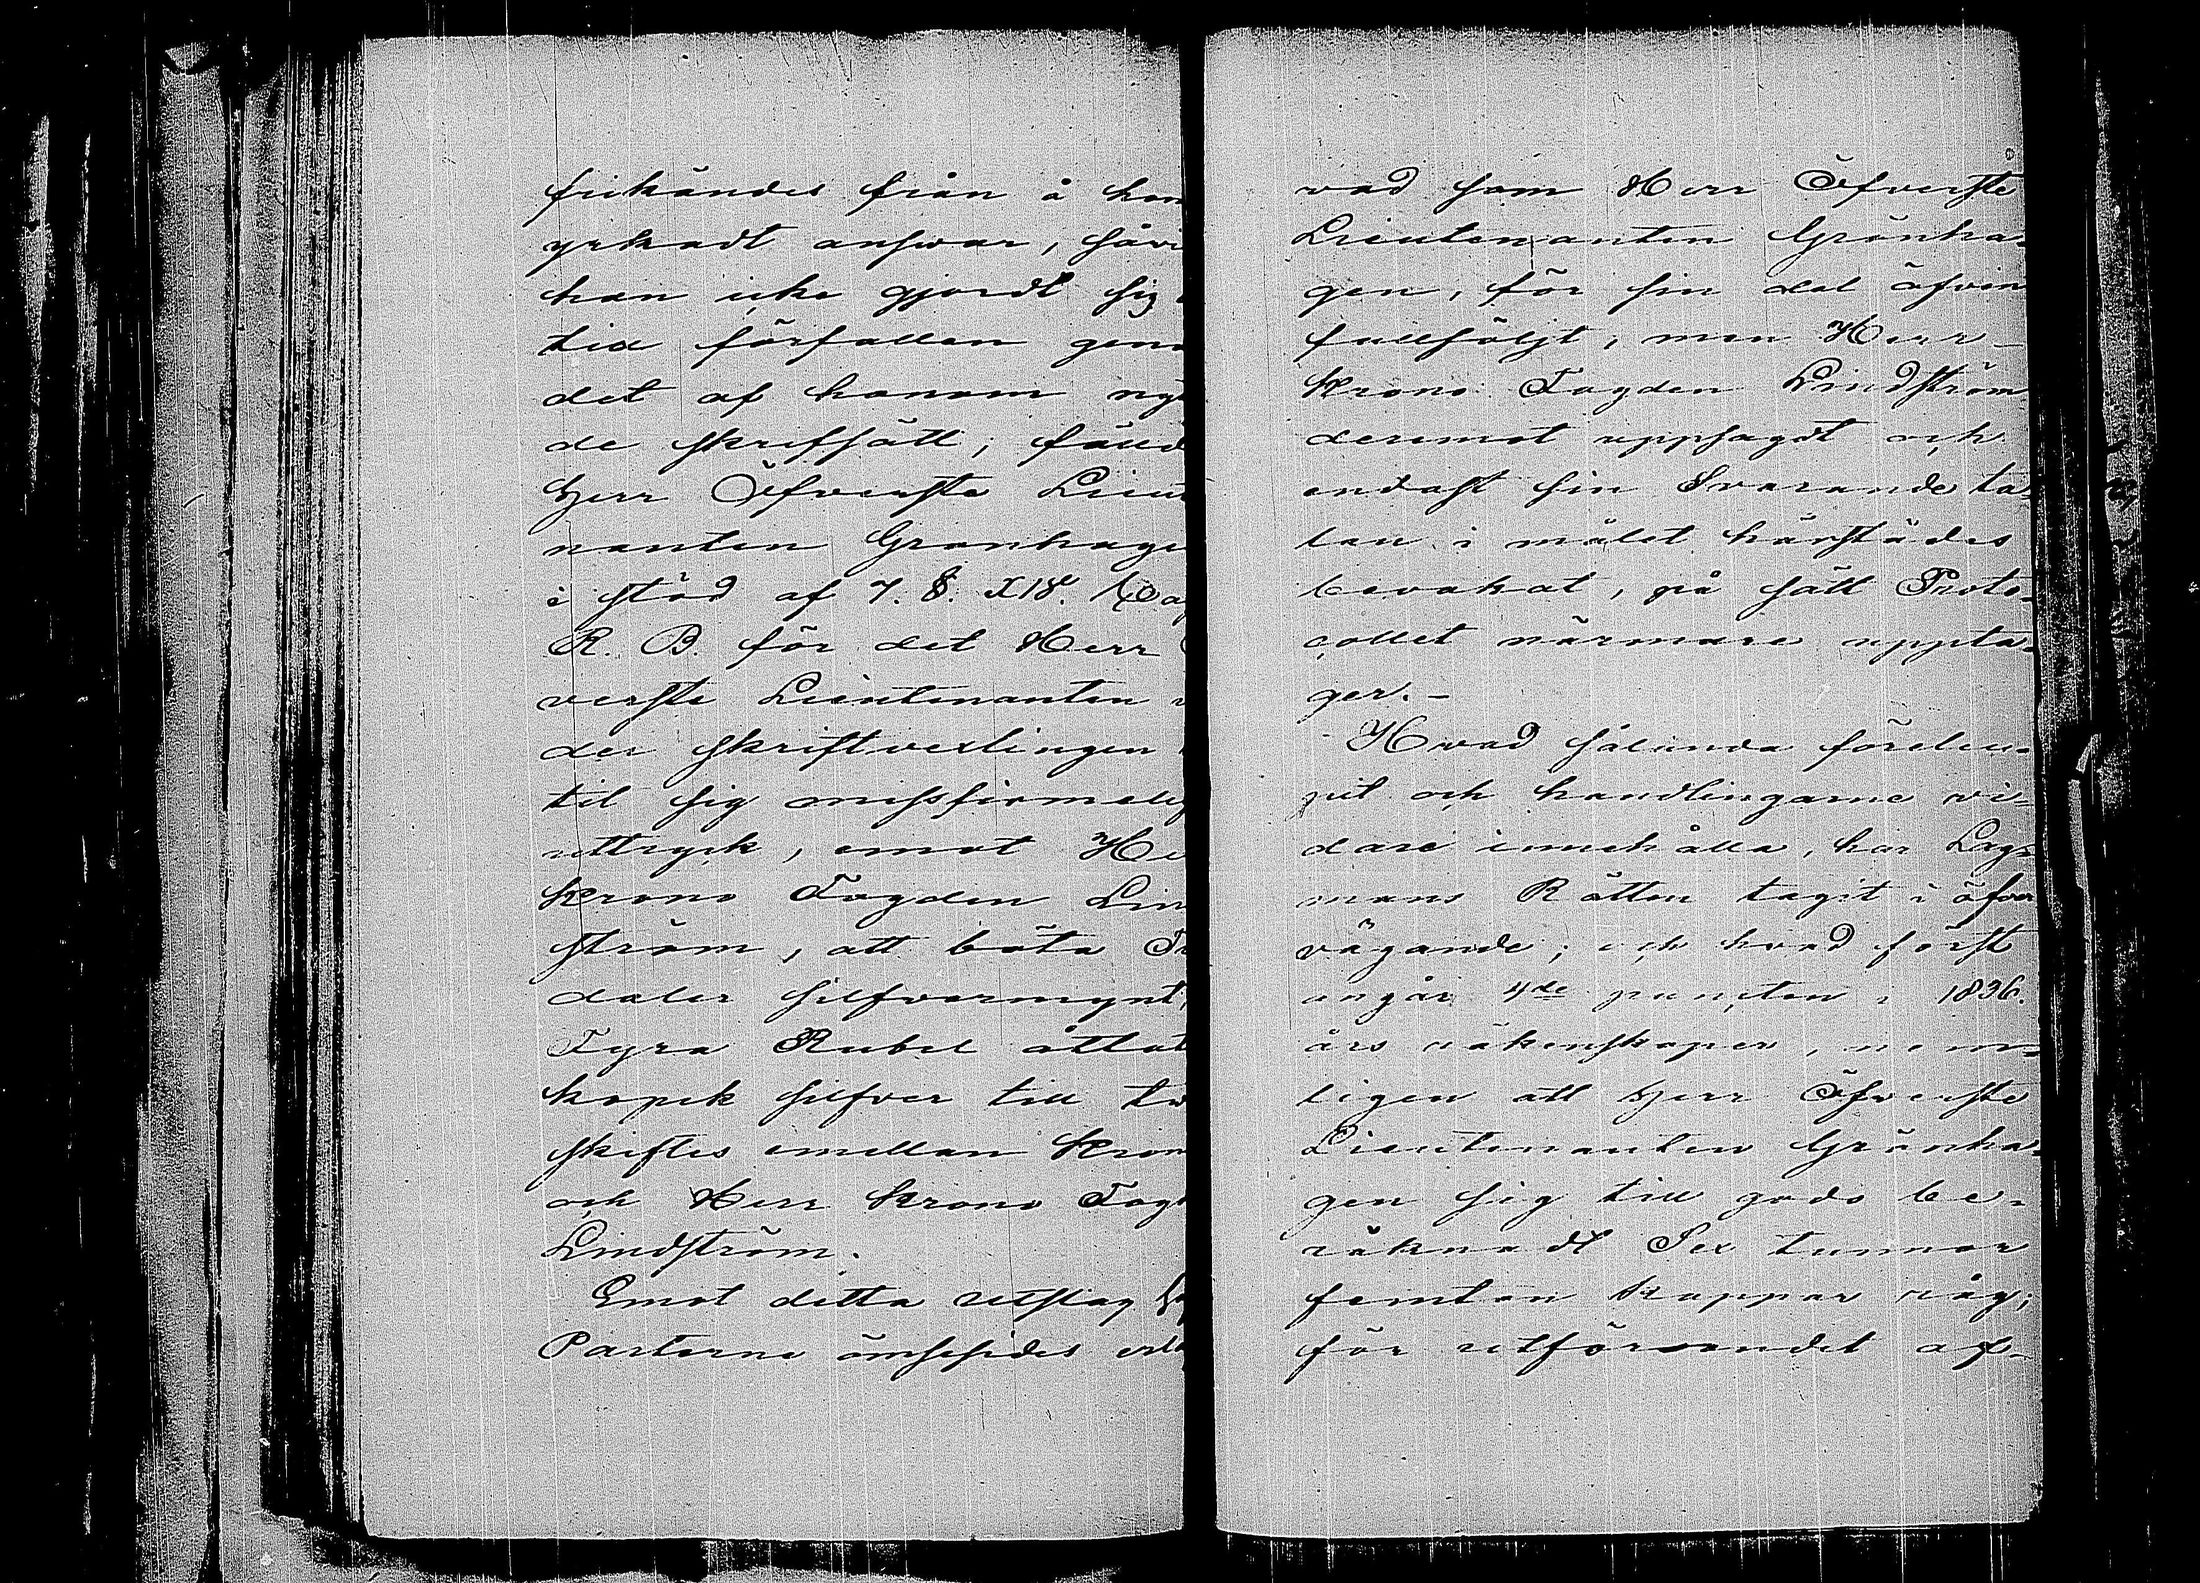 frikändes från å hon
yrkadt answar, såvi
han icke gjordt sig
till förfallen geno
det af honom ny
de skrifsätt; fäld
Herr Öfverste Lieut
nanten Grönhage
i stöd af 7. §. XIV. Cap
R. B. för det Herr
verste Lieutenanten
der skriftvexlingen
til sig missfirmelig
uttryck, emot He
Krono Fogden Lin
ström, att böta Tr
daler silfvermynt,
Fyra Rubel åttat
kopek silfver till tv
skiftes emellan Kron
och Herr Krono Fogd
Lindström.
Emot detta utslag
Parterne ömsesides
vad som Herr Öfverste
Lieutenanten Grönha-
gen, för sin del äfven
fullföljt; men Herr
Krono Fogden Lindström
deremot uppsagdt och
endast sin Svarande ta-
lan i målet härstädes
bevakat, på sätt Proto-
collet närmare uppta-
ger.-
Hvad sålunda förelu-
pit och handlingarne vi-
dare innehålla, har Lag-
mans Rätten tagit i öfver
vägande; och hvad först
angår 4de puncten i 1836.
års räkenskaper, nem-
ligen att Herr Öfverste
Lieutenanten Grönha-
gen sig till godo be-
räknadt Sex tunnor
femton kappar råg;
för utförandet af